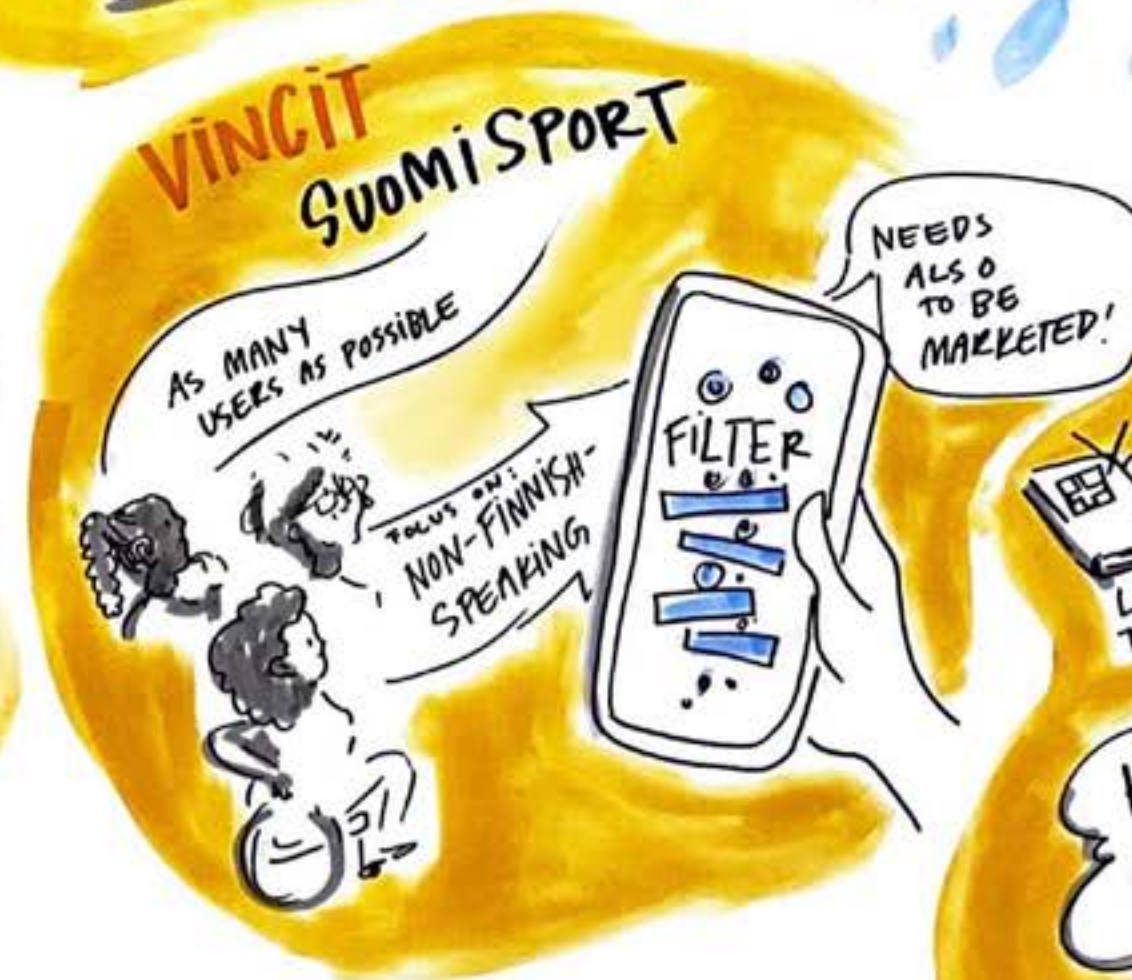 VINCIT
SUOMISPORT
AS MANY
USERS AS POSSIBLE
FOCUS ON:
NON-FINNISH-
SPEAKING
FILTER
NEEDS
ALSO
TO BE
MARKETED!